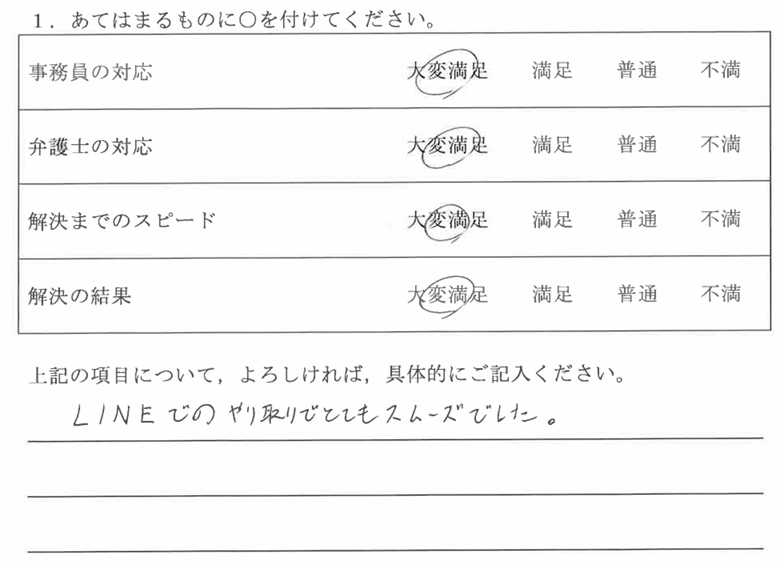 1．あてはまるものに○を付けてください。
事務員の対応 大変満足 満足 普通 不満
弁護士の対応 大変満足 満足 普通 不満
解決までのスピード 大変満足 満足 普通 不満
解決の結果 大変満足 満足 普通 不満
上記の項目について，よろしければ，具体的にご記入ください。
LINEでのやり取りでとてもスムーズでした。